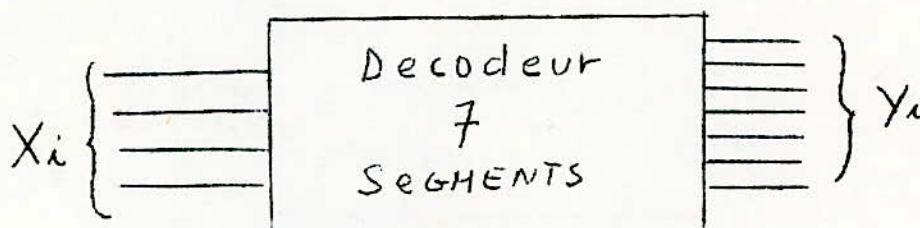 Decodeur
7
SEGMENTS
Xi
Yi